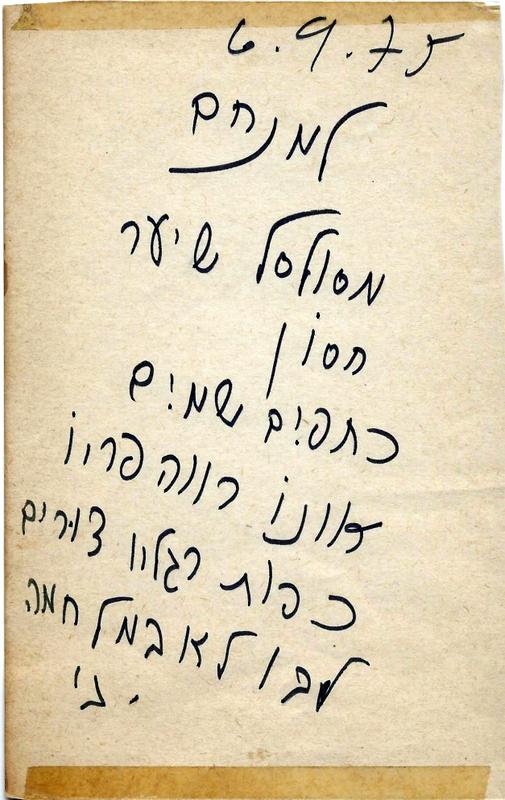 6.9.75
למנחם
מסולסל שיער
חסון
כתפים שמים
אונו רווה פריו
כפות רגליו צורים
לבו לא במלחמה